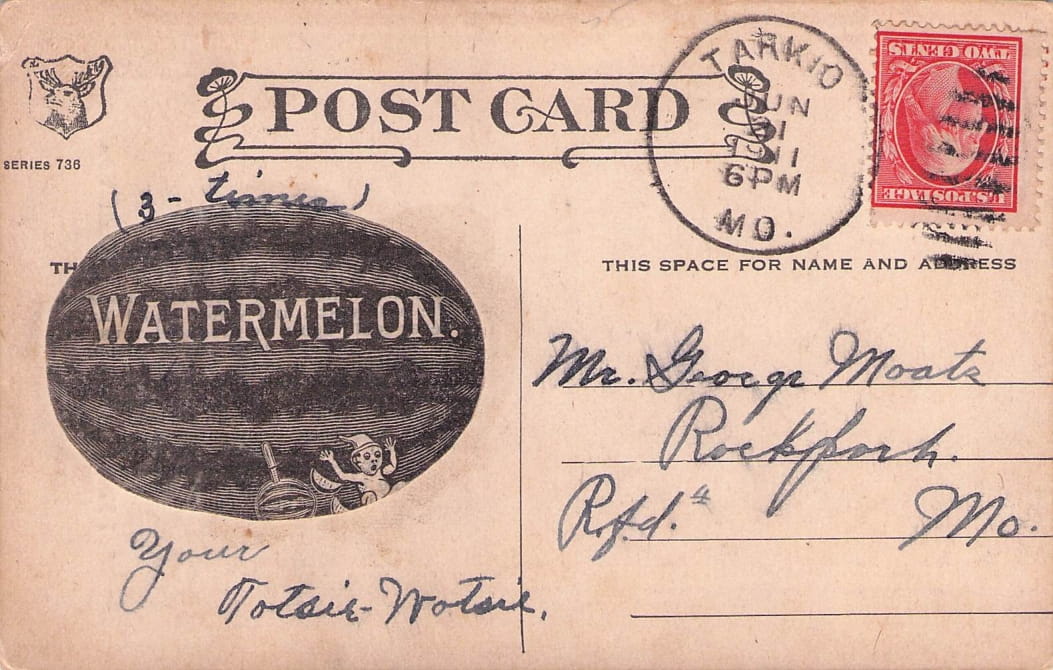 POST CARD
SERIES 736
TARKIO
JUN
1911
6 PM
MO.
TWO CENTS
U.S. POSTAGE
(3 - times)
TH
THIS SPACE FOR NAME AND ADDRESS
WATERMELON.
Mr. George Moatz
Rockport.
R.f.d. 4 Mo.
Your
Totsie-Wotsie.